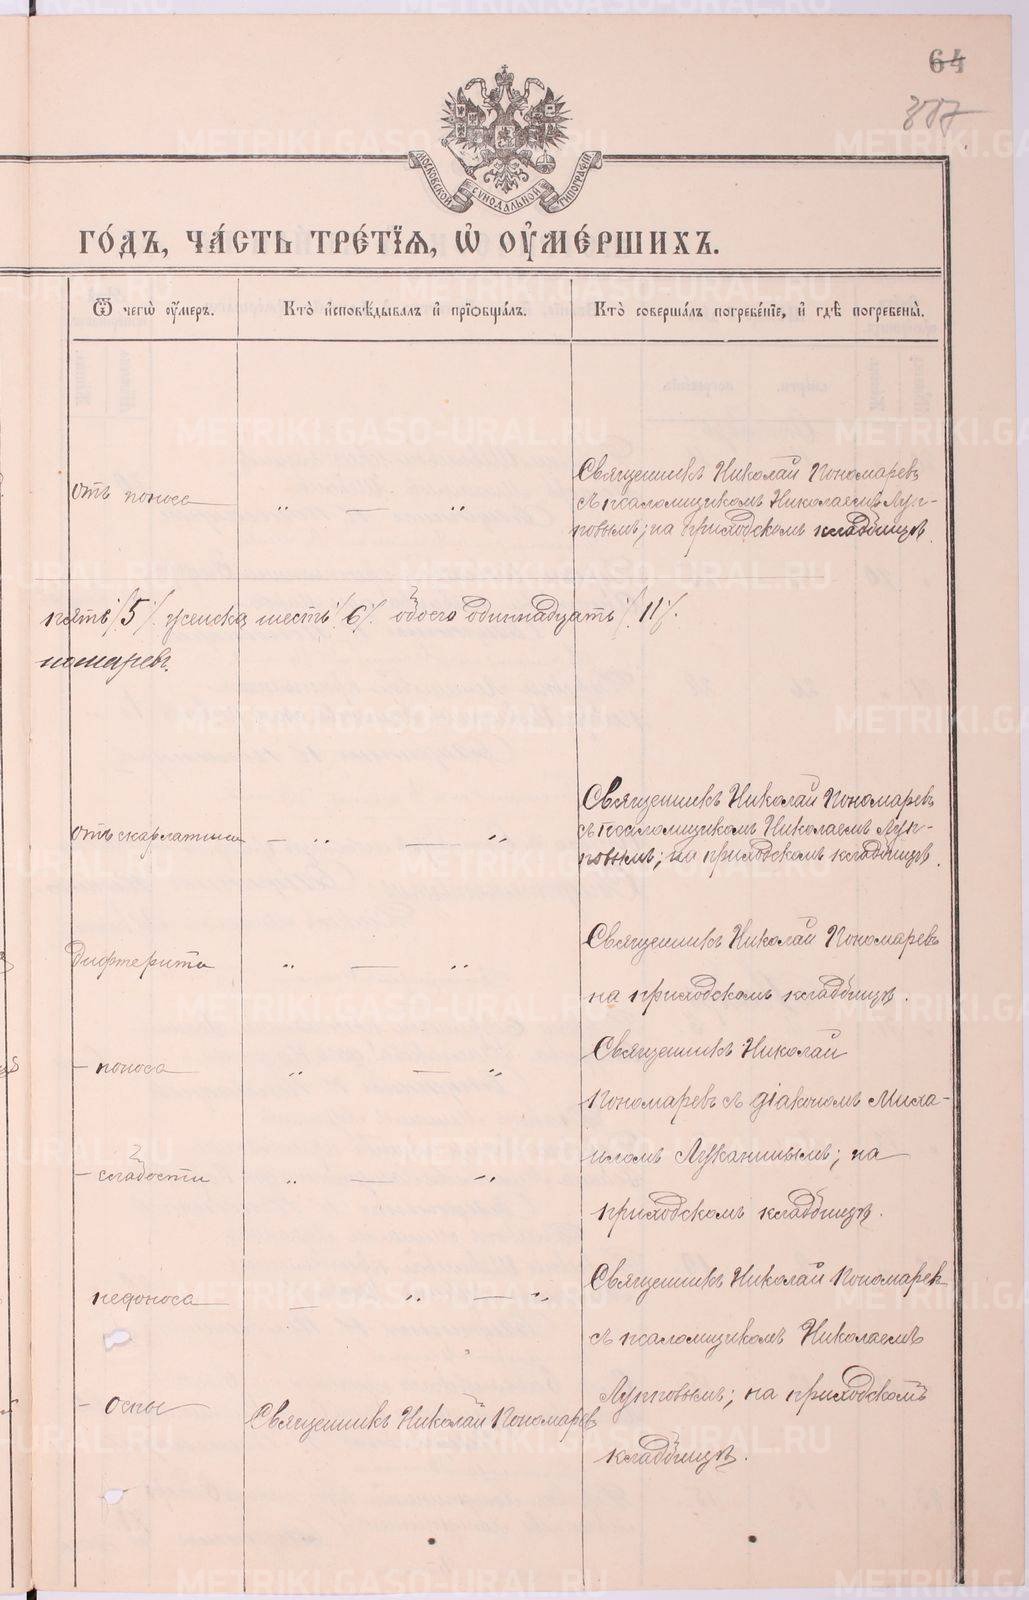 64
МОСКОВСКОЙ СѴНОДАЛЬНОЙ ТИПОГРАФІИ
ГО́ДЪ, ЧА́СТЬ ТРЕ́ТЇѦ, Ѡ҆ ОУ҆МЕ́РШИХЪ.
Ѿ чегѡ̀ оу҆́меръ.
Кто̀ и҆сповѣ́дывалъ и҆ прїѻбща́лъ.
Кто̀ соверша́лъ погребе́нїе, и҆ гдѣ̀ погребены̀.
Отъ поноса
„ — „
Священникъ Николай Пономаревъ
съ псаломщикомъ Николаемъ Луп-
повымъ; на приходскомъ кладбищѣ.
пять /5/. женска шесть /6/. обоего одиннадцать /11/.
номаревъ.
Отъ скарлатины
— „ — „
Священникъ Николай Пономаревъ
съ псаломщикомъ Николаемъ Луп-
повымъ; на приходскомъ кладбищѣ.
Дифтерита
„ — „
Священникъ Николай Пономаревъ
на приходскомъ кладбищѣ.
- поноса
„ — „
Священникъ Николай
Пономаревъ съ діакономъ Миха-
иломъ Луканинымъ; на
приходскомъ кладбищѣ.
- слабости
„ — „
недоноса
— „ — „
Священникъ Николай Пономаревъ
съ псаломщикомъ Николаемъ
Лупповымъ; на приходскомъ
кладбищѣ.
- оспы
Священникъ Николай Пономаревъ
METRIKI.GASO-URAL.RU